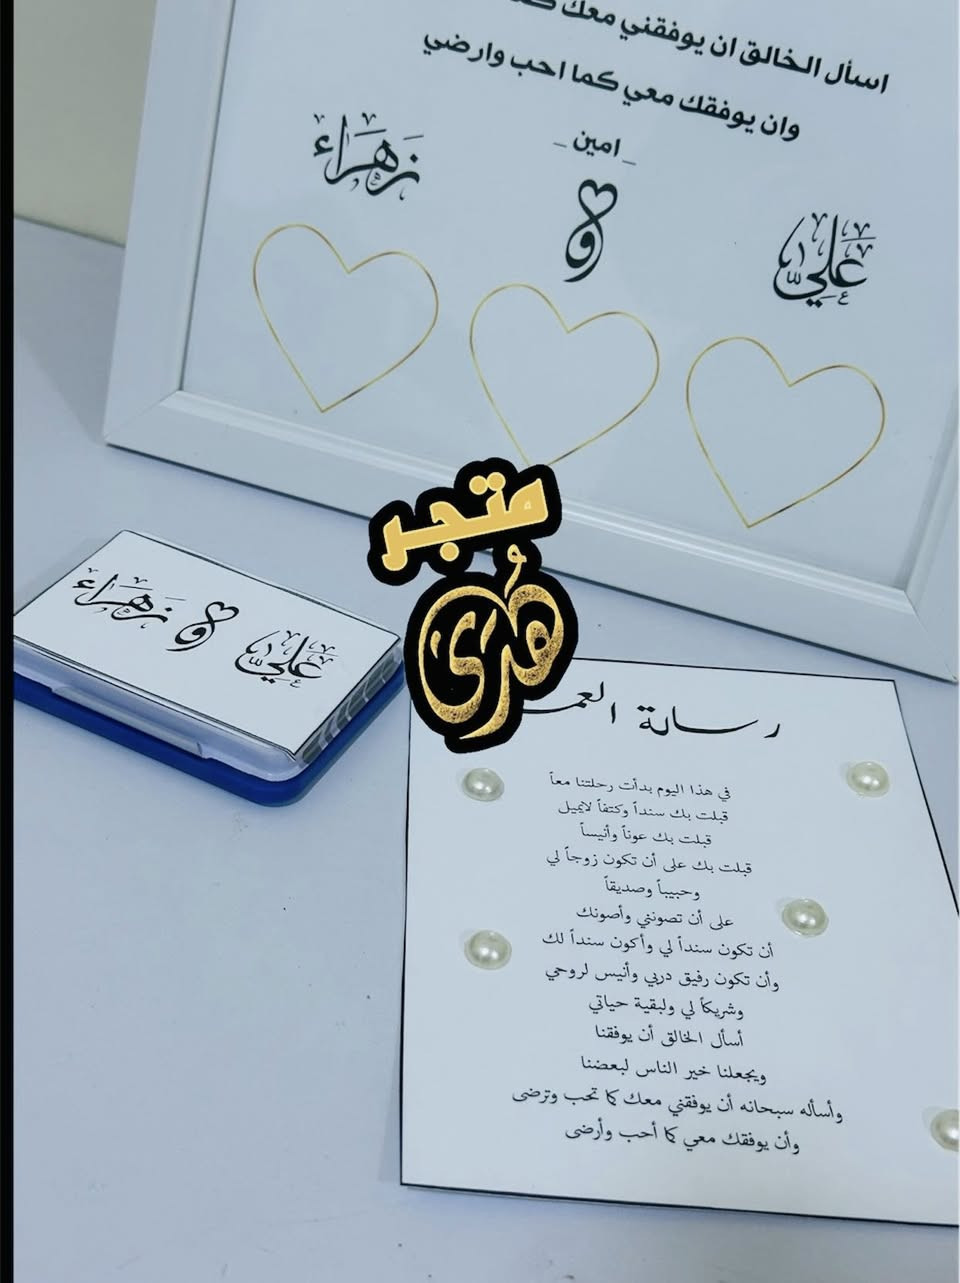 اسأل الخالق ان يوفقني معك
وان يوفقك معي كما احب وارضي
_ امين _
عليّ و زهراء
متجر
هُدى
عليّ و زهراء
رسالة
في هذا اليوم بدأت رحلتنا معاً
قبلت بك سنداً وكتفاً لايميل
قبلت بك عوناً وأنيساً
قبلت بك على أن تكون زوجاً لي
وحبيباً وصديقاً
على أن تصونني وأصونك
أن تكون سنداً لي وأكون سنداً لك
وأن تكون رفيق دربي وأنيس لروحي
وشريكاً لي ولبقية حياتي
أسأل الخالق أن يوفقنا
ويجعلنا خير الناس لبعضنا
وأسأله سبحانه أن يوفقني معك كما تحب وترضى
وأن يوفقك معي كما أحب وأرضى